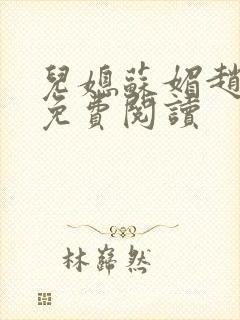 兒媳蘇媚趙
免費閱讀
林巋然